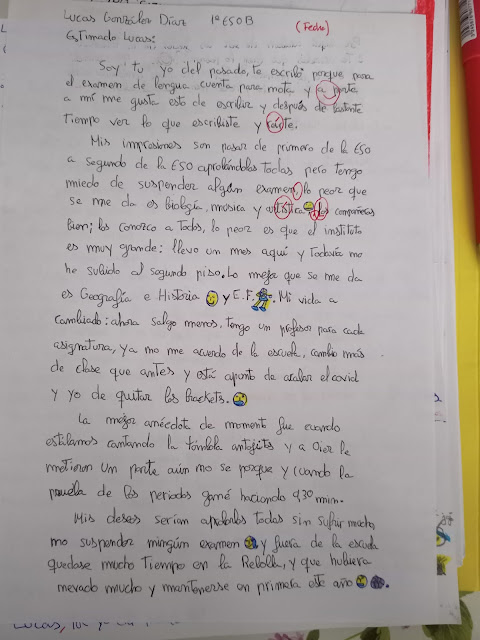 Lucas González Díaz 1º ESO B (Fecha)
Estimado Lucas:
Soy tu yo del pasado, te escribo porque para
el examen de lengua cuenta para nota y a parte
a mí me gusta esto de escribir y después de bastante
tiempo ver lo que escribiste y reirte.
Mis impresiones son pasar de primero de la ESO
a segundo de la ESO aprobándolas todas pero tengo
miedo de suspender algún examen, lo peor que
se me da es biología, música y artística. Los compañeros
bien; los conozco a todos, lo peor es que el instituto
es muy grande: llevo un mes aquí y todavía no
he subido al segundo piso. Lo mejor que se me da
es Geografía e Historia y E.F. Mi vida a
cambiado: ahora salgo menos, tengo un profesor para cada
asignatura, ya no me acuerdo de la escuela, cambio más
de clase que antes y está apunto de acabar el covid
y yo de quitar los brackets.
La mejor anécdota de momento fue cuando
estábamos cantando la tómbola antojitos y a Oier le
metieron un parte aún no se porque y cuando la
prueba de los periodos gané haciendo 9,30 min.
Mis deseos serían aprobarlas todas sin sufrir mucho,
no suspender ningún examen y fuera de la escuela
quedase mucho tiempo en la Rebolla, y que hubiera
nevado mucho y mantenerse en primera este año.